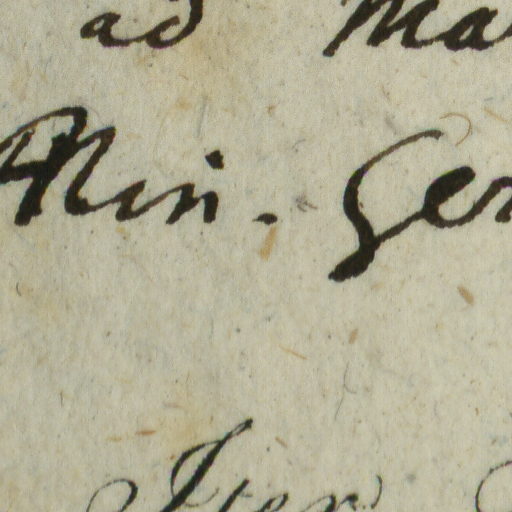 ad Ma
Min. Ger
Iter